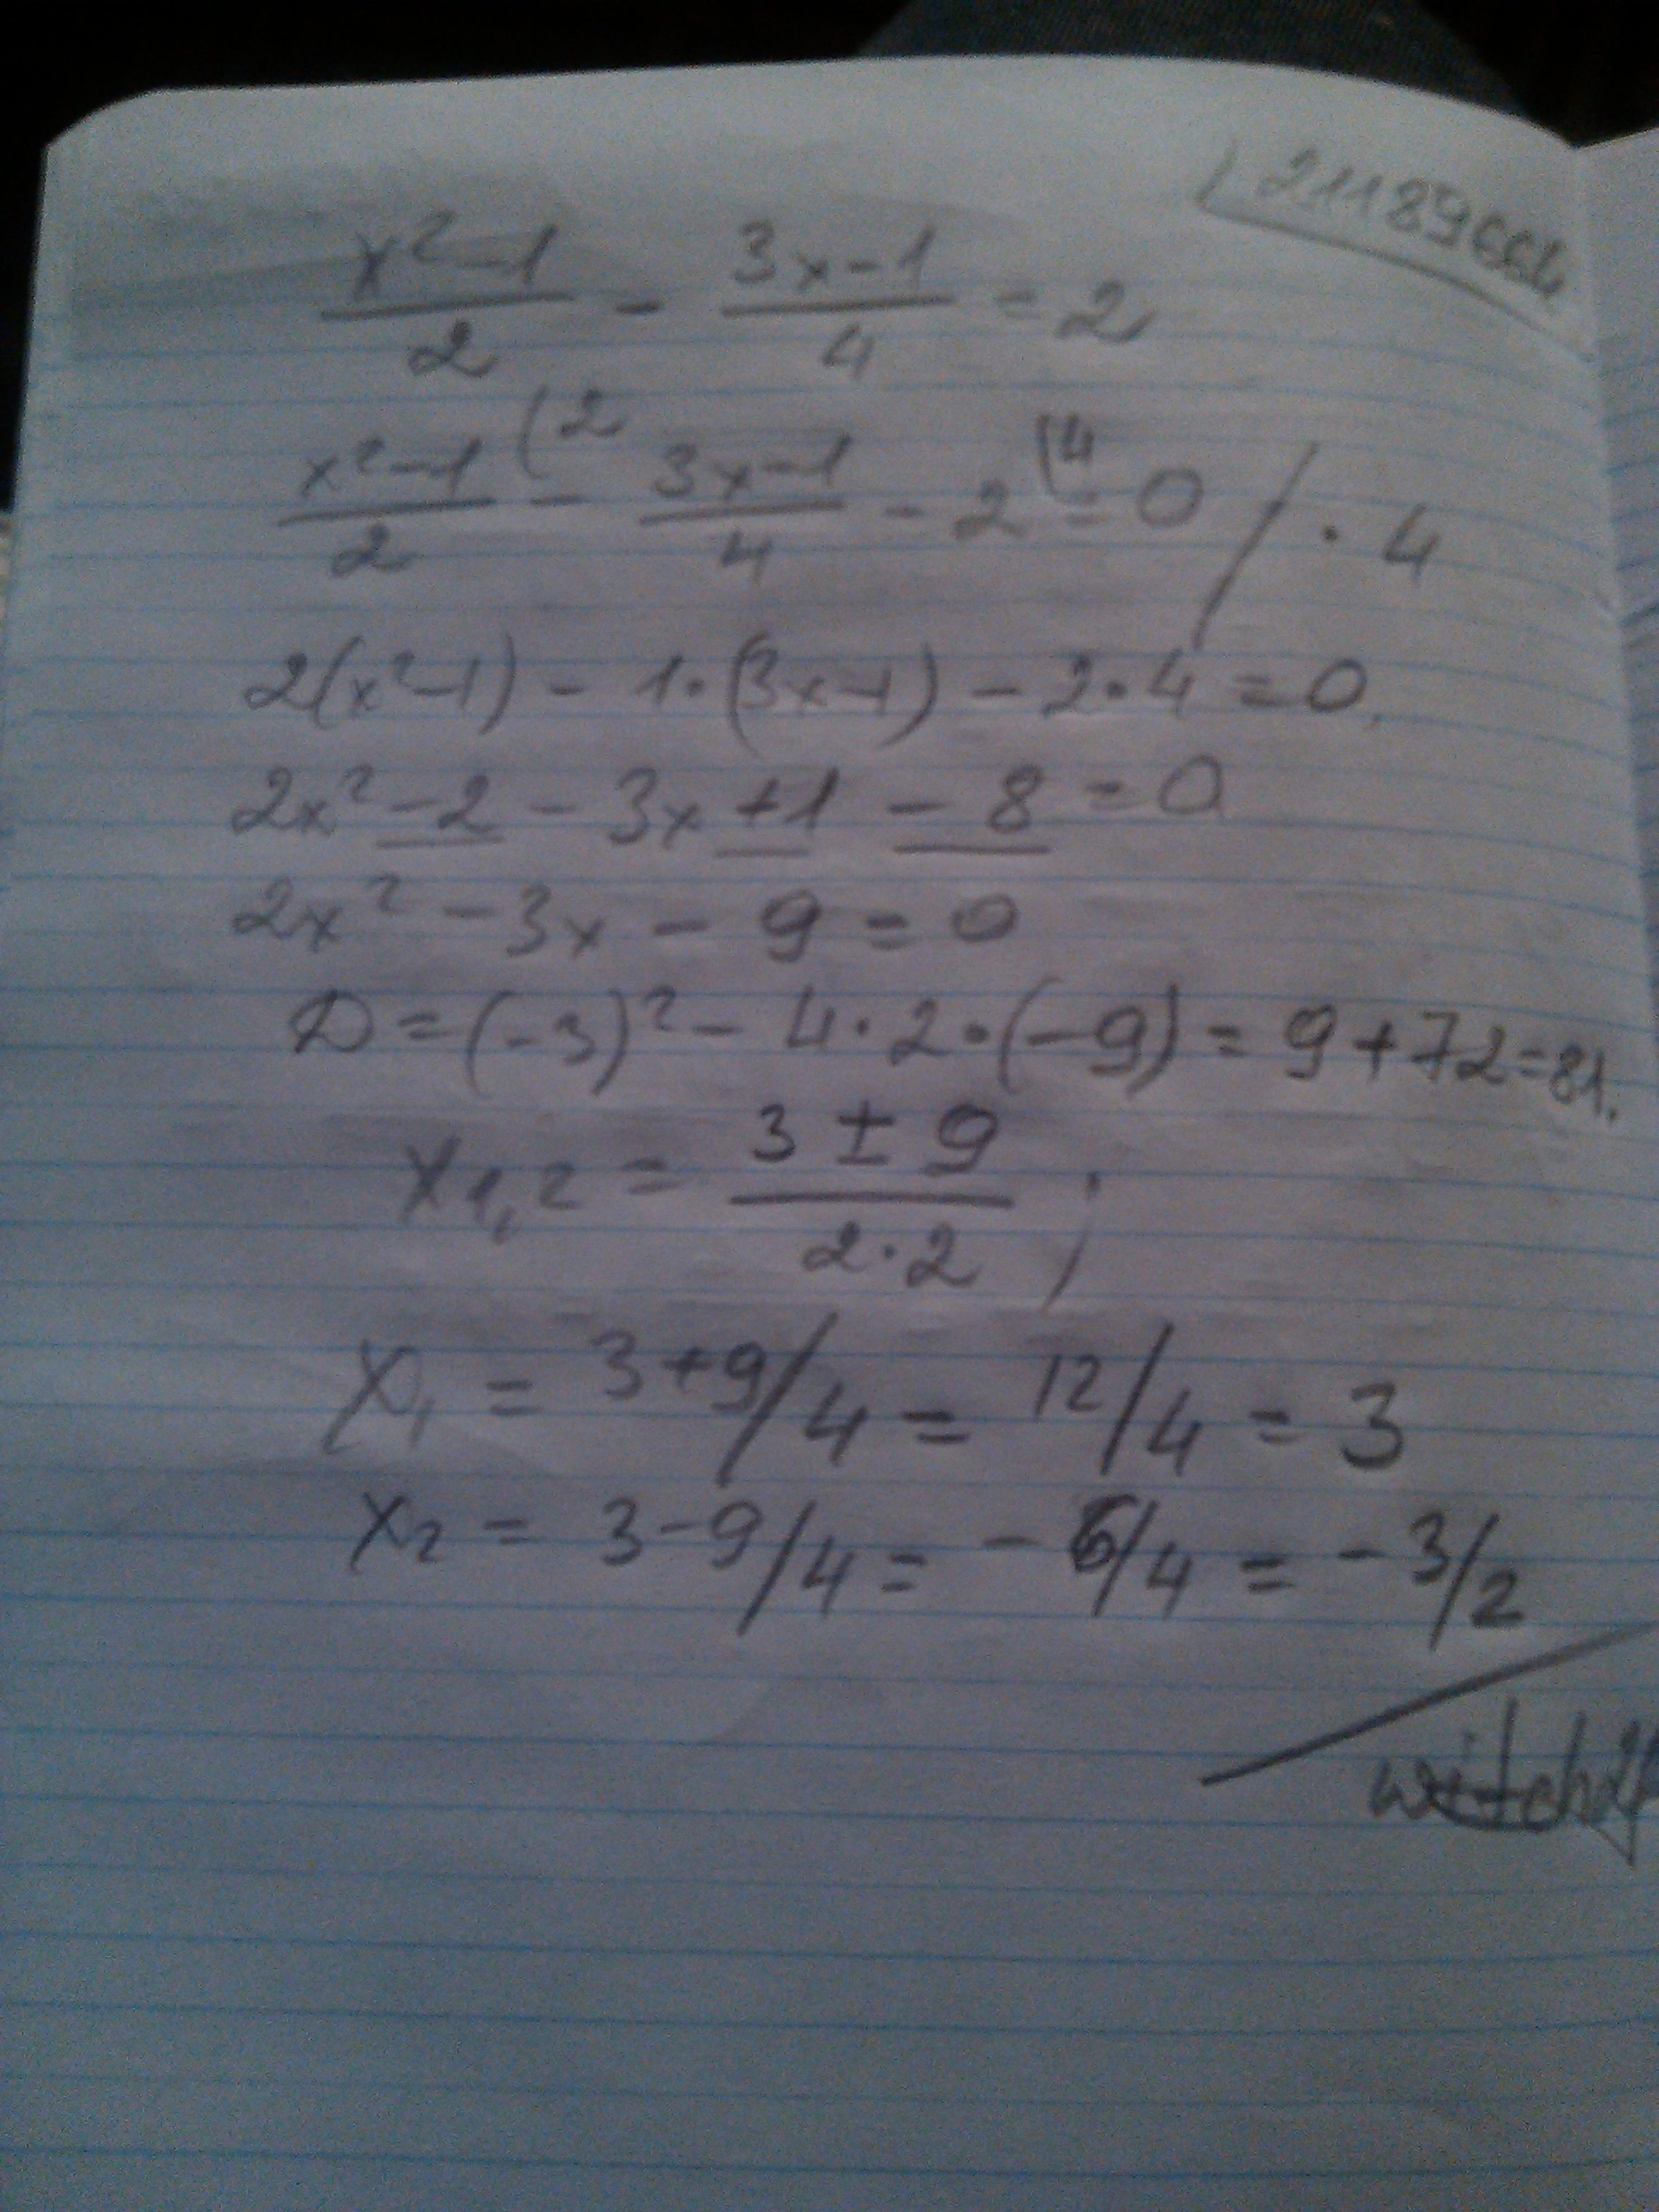 21189664
x²-1/2 - 3x-1/4 = 2
x²-1/2 (2 - 3x-1/4 - 2 (4 = 0 / · 4
2(x²-1) - 1·(3x-1) - 2·4 = 0
2x² -2 - 3x +1 - 8 = 0
2x² - 3x - 9 = 0
D = (-3)² - 4·2·(-9) = 9+72=81.
x1,2 = 3 ± 9/2·2 ;
X1 = 3+9/4 = 12/4 = 3
X2 = 3-9/4 = - 6/4 = - 3/2